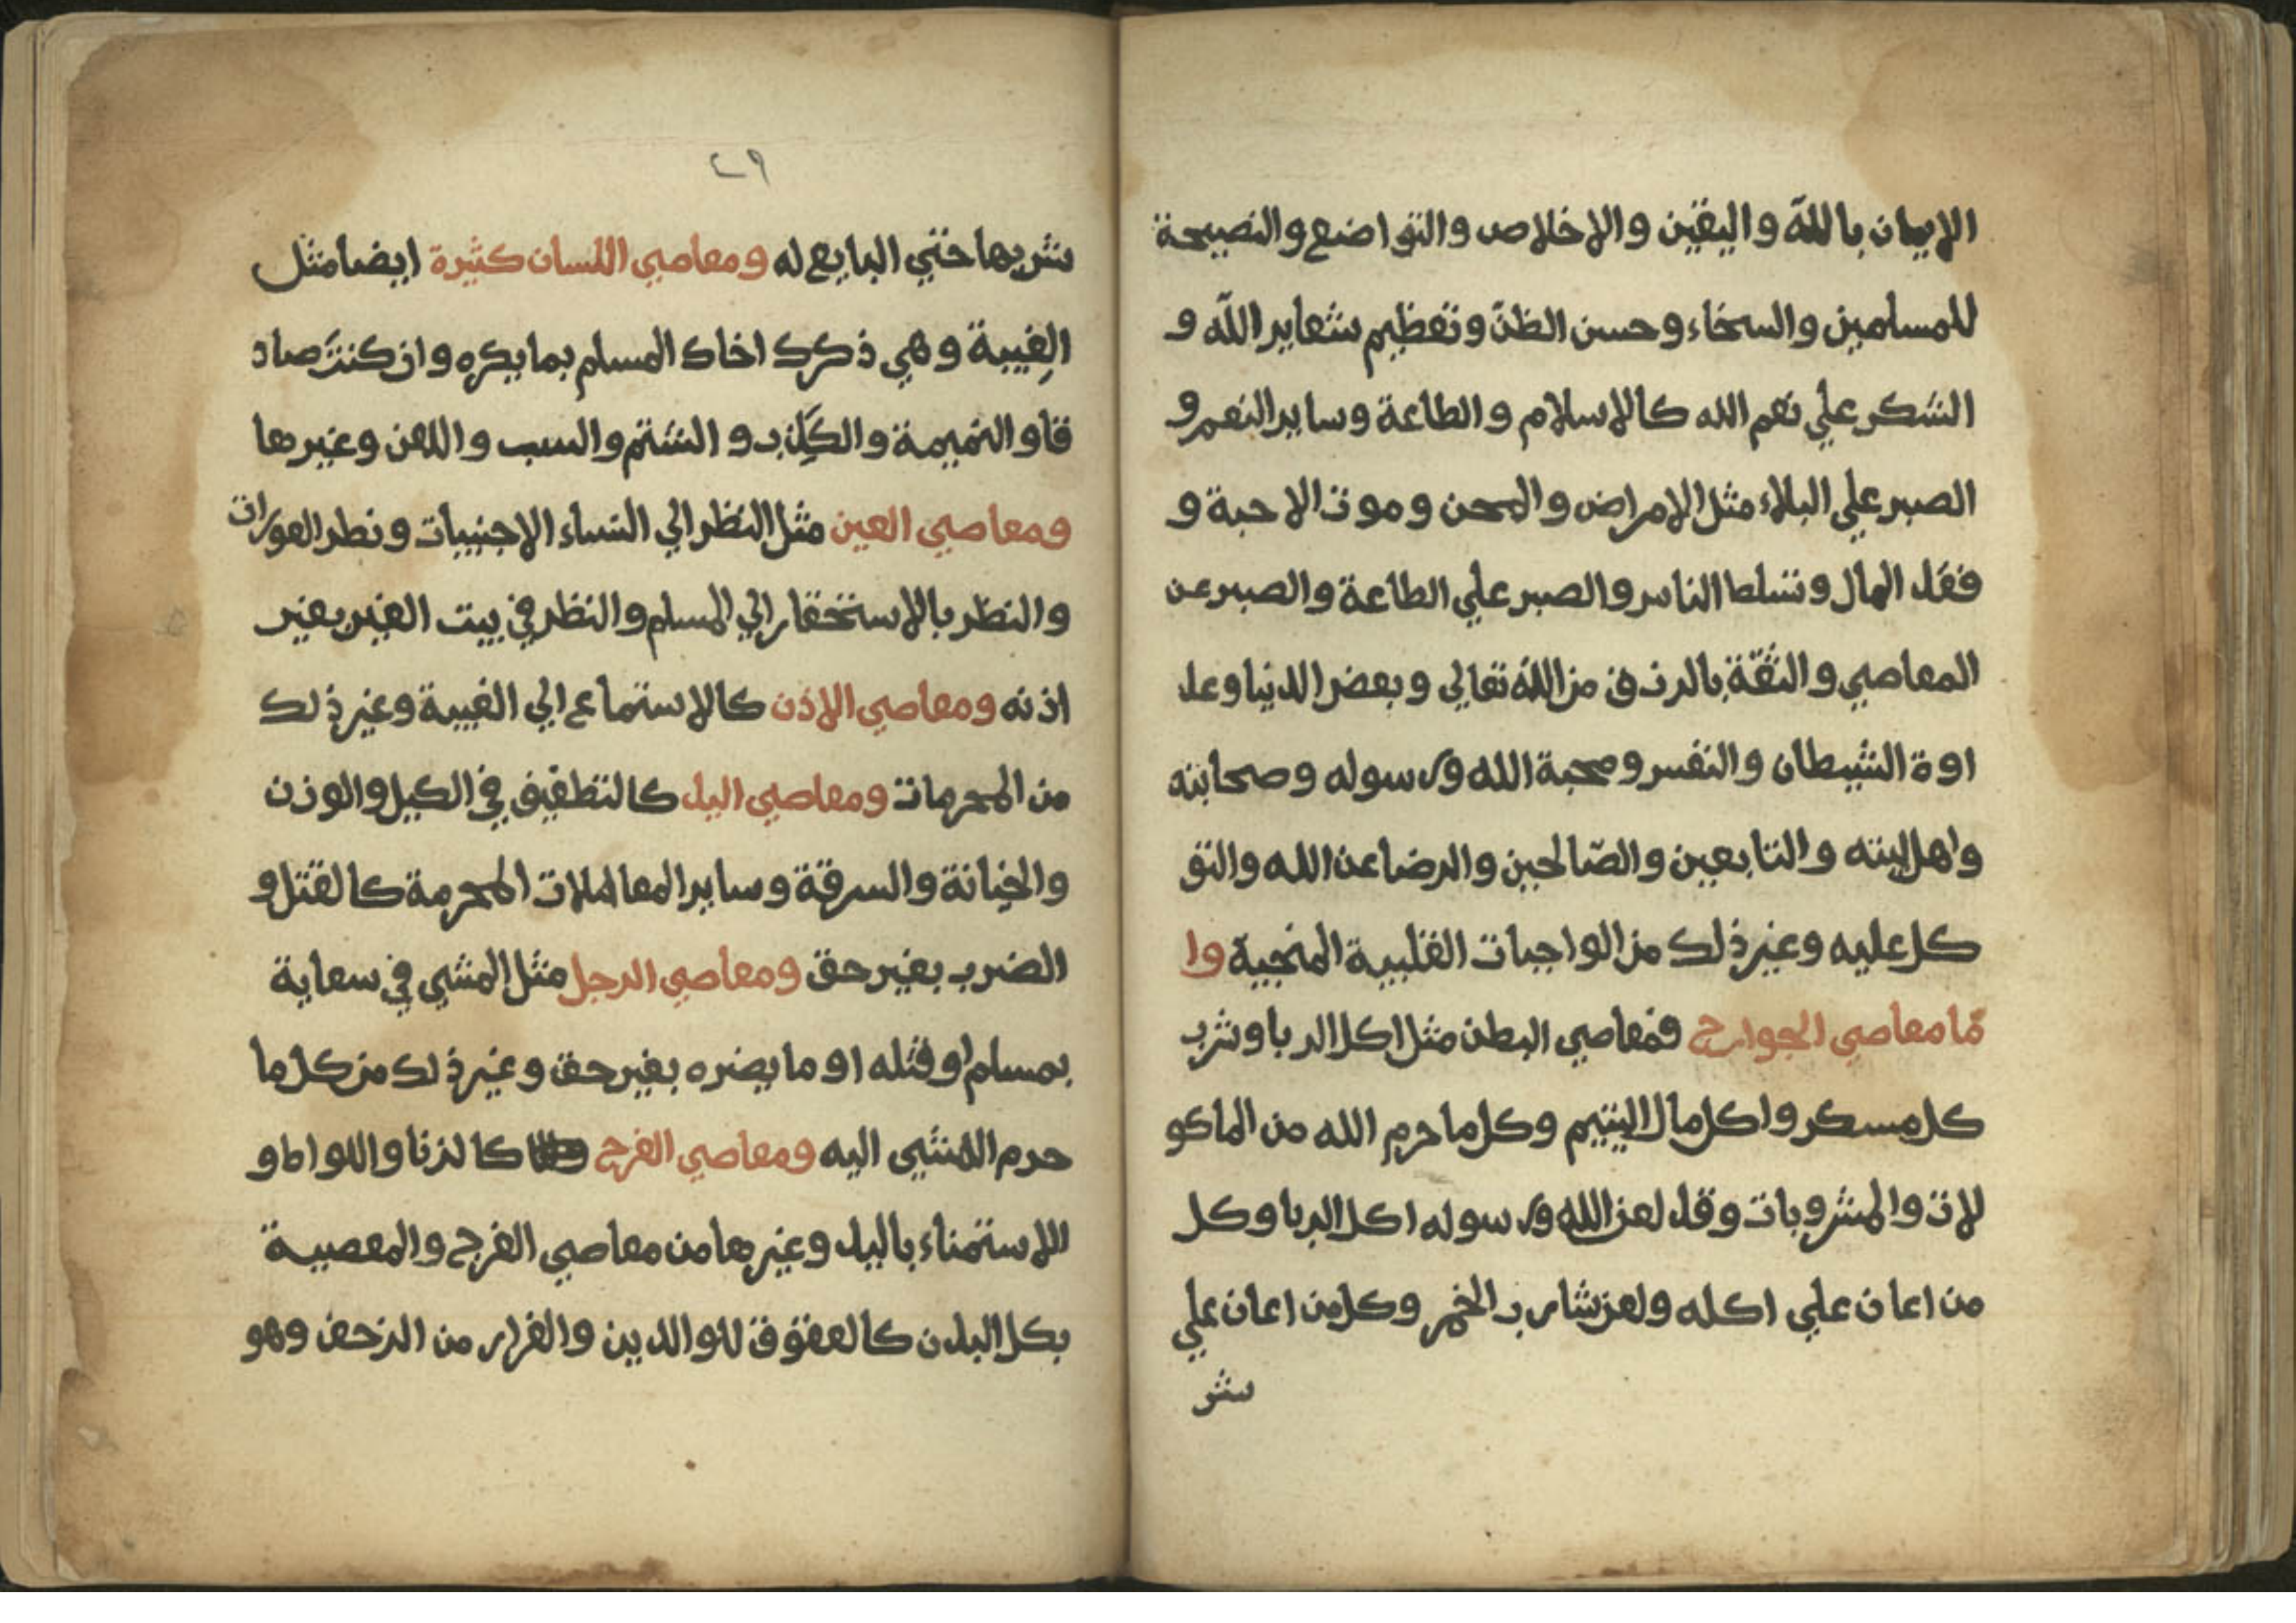 الايمان بالله واليقين والاخلاص والتواضع والنصيحة
للمسلمين والسخاء وحسن الظن وتعظيم شعاير الله و
الشكر علي نعم الله كالاسلام والطاعة وساير النعم و
الصبر علي البلاء مثل الامراض والمحن وموت الاحبة و
فقد المال وتسلط الناس والصبر علي الطاعة والصبر عن
المعاصي والثقة بالرزق من الله تعالي وبعض الدنيا وعد
اوة الشيطان والنفس ومحبة الله ورسوله وصحابته
واهل بيته والتابعين والصّالحين والرضا عن الله والتو
كل عليه وغير ذلك من الواجبات القلبية المنجية وا
مّا معاصي الجوارح فمعاصي البطن مثل اكل الربا وشرب
كل مسكر واكل مال اليتيم وكل ما حرم الله من الماكو
لات والمشروبات وقد لعن الله ورسوله اكل الربا وكل
من اعان علي اكله ولعن شارب الخمر وكل من اعان علي
شر
٤٩
شربها حتي البايع له ومعاصي اللسان كثيرة ايضا مثل
الغِيبة وهي ذكرك اخاك المسلم بما يكره وان كنتَ صاد
قا والنميمة والكَذِب والشتم والسب واللعن وغيرها
ومعاصي العين مثل النظر الي النساء الاجنبيات ونطر العورات
والنظر بالاستحقار الي المسلم والنظر في بيت الغير بغير
اذنه ومعاصي الاذن كالاستماع الي الغيبة وغير ذلك
من المحرمات ومعاصي اليد كالتطفيف في الكيل والوزن
والخيانة والسرقة وساير المعاملات المحرمة كالقتل و
الضرب بغير حق ومعاصي الرجل مثل المشي في سعاية
بمسلم او قتله او ما يضره بغير حق وغير ذلك من كل ما
حرم المشي اليه ومعاصي الفرج كالزنا واللواط و
اللاستمناء باليد وغيرها من معاصي الفرج والمعصية
بكل البدن كالعقوق للوالدين والفرار من الزحف وهو